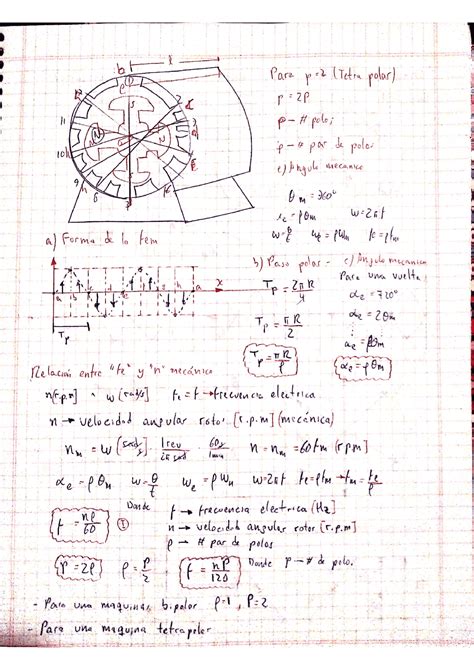 Para p=2 (Tetra polar)
P = 2p
P → # polos
p → # par de polos
c) Ángulo mecánico
θm = 360°
αe = pθm   w = 2πt
w = θ/t   we = pWm   fe = pfm
a) Forma de la fem
b) Paso polar -
Tp = 2πR/4
Tp = πR/2
Tp = πR/P
c) Ángulo mecanico
Para una vuelta
αe = 720°
αe = 2θm
αe = pθm
αe = pθm
Tp
x
Relación entre "fe" y "n" mecánica
n[r.p.m] ∧ w[rad/s]   fe = f → frecuencia electrica
n → velocidad angular rotor [r.p.m] (mecánica)
nm = w [rad/s] · 1rev/2π rad · 60s/1min   n = nm = 60fm (rpm)
αe = pθm   w = θ/t   we = pWm   w = 2πt   fe = pfm → fm = fe/p
f = np/60   I   Donde   f → frecuencia electrica (Hz)
n → velocidad angular rotor [r.p.m]
p → # par de polos
P = 2p   p = P/2   f = nP/120   Donde P → # de polo.
- Para una maquina bipolar p=1, P=2
- Para una maquina tetrapolar